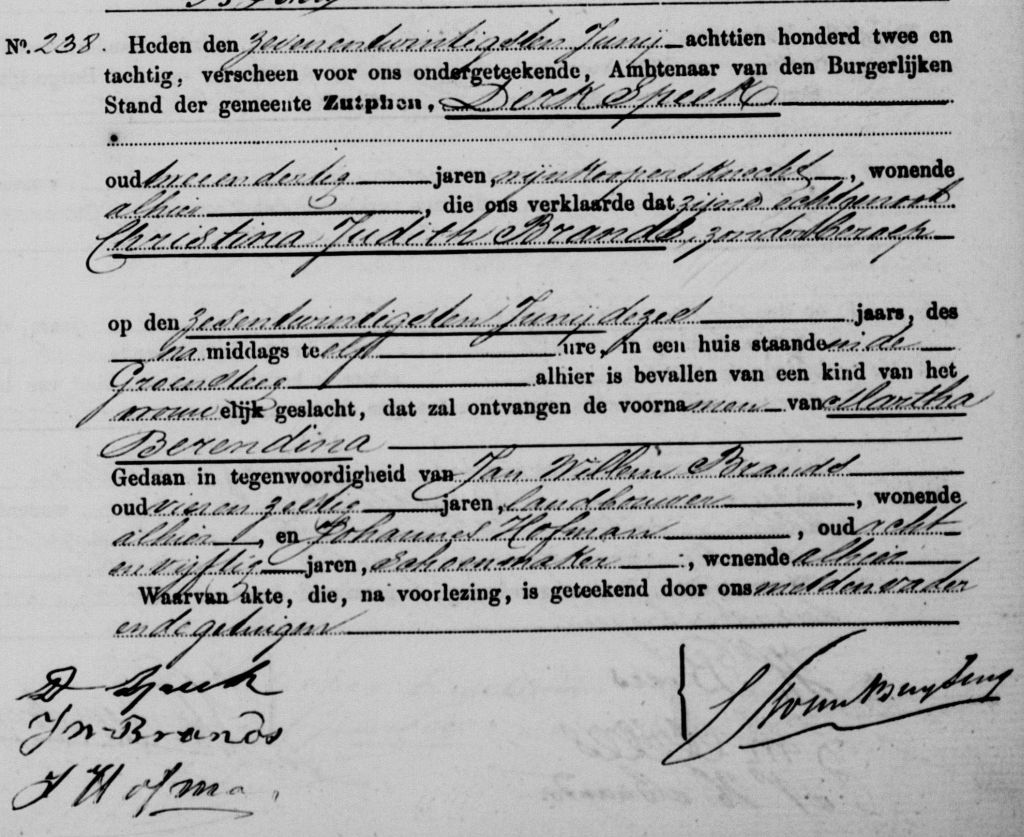 No. 238. Heden den zevenentwintigsten Junij achttien honderd twee en
tachtig, verscheen voor ons ondergeteekende, Ambtenaar van den Burgerlijken
Stand der gemeente Zutphen, Derk Speek
oud tweeendertig jaren, wijnkoopersknecht, wonende
alhier, die ons verklaarde dat zijne echtgenoot
Christina Judith Brands, zonder beroep
op den zesentwintigsten Junij dezes jaars, des
na middags te elf ure, in een huis staande in de
Groensteeg alhier is bevallen van een kind van het
vrouwelijk geslacht, dat zal ontvangen de voornamen van Martha
Berendina
Gedaan in tegenwoordigheid van Jan Willem Brands
oud vierenzestig jaren, landbouwer, wonende
alhier, en Johannes Hofman, oud acht
en vijftig jaren, schoenmaker, wonende alhier
Waarvan akte, die, na voorlezing, is geteekend door ons met den vader
en de getuigen
D Speek
JW Brands
J Hofma